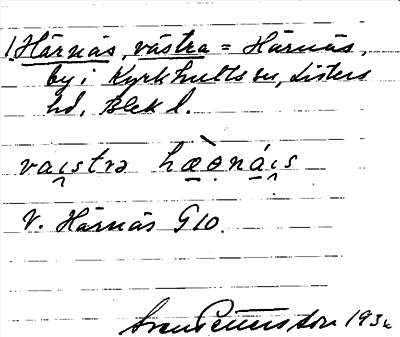 1. Härnäs, västra = Härnäs,
by i Kyrkhults sn, Listers
hd, Blek l.
vai̯strə hæ̀ənái̯s
V. Härnäs G10.
Sven Pettersson 193